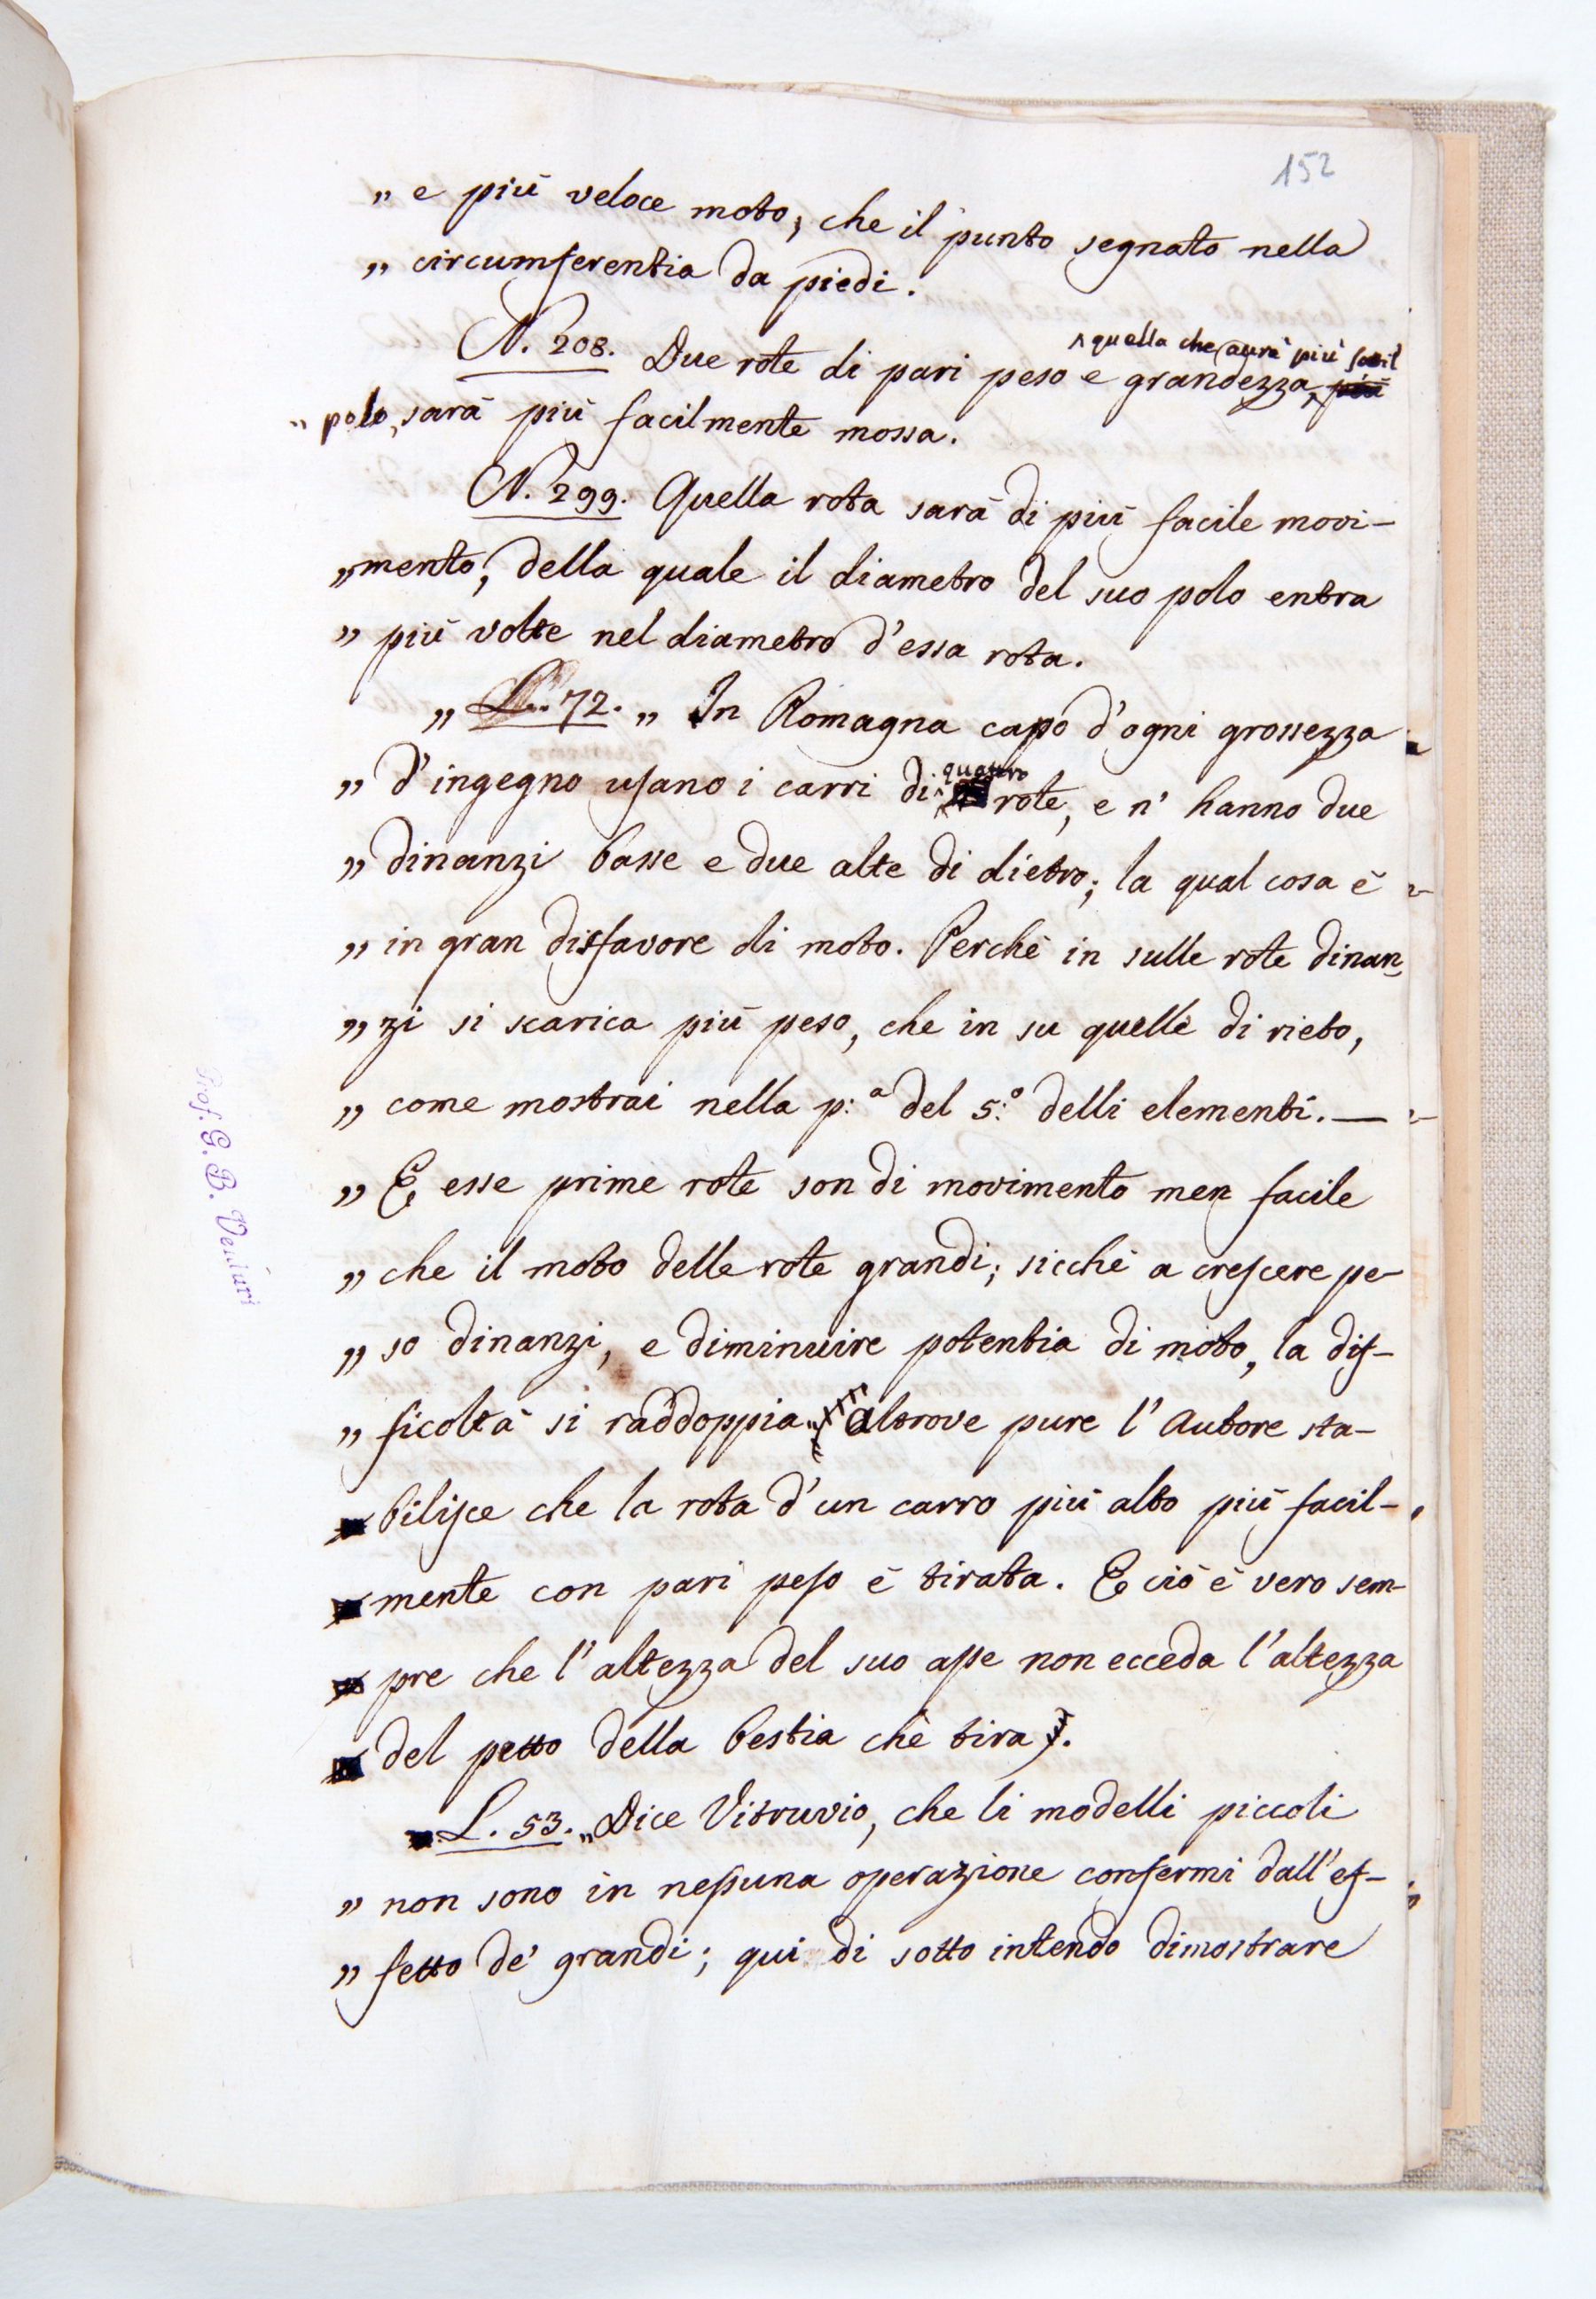 152
„ e più veloce moto, che il punto segnato nella
„ circumferentia da piedi.
N. 208. Due rote di pari peso e grandezza, ^quella che aurà più sottil
„ polo, sarà più facilmente mossa.
N. 299. Quella rota sarà di più facile movi-
„ mento, della quale il diametro del suo polo entra
„ più volte nel diametro d'essa rota.
„ L. 72. „ In Romagna capo d'ogni grossezza
„ d'ingegno usano i carri di ^quattro rote, e n' hanno due
„ dinanzi basse e due alte di dietro; la qual cosa è
„ in gran disfavore di moto. Perchè in sulle rote dinan
„ zi si scarica più peso, che in su quelle di rieto,
„ come mostrai nella p:ª del 5:º delli elementi. —
„ E esse prime rote son di movimento men facile
„ che il moto delle rote grandi; sicchè a crescere pe-
„ so dinanzi, e diminuire potentia di moto, la dif-
„ ficoltà si raddoppia „ altrove pure l'Autore sta-
bilisce che la rota d'un carro più alto più facil-
mente con pari peso è tirata. E ciò è vero sem-
pre che l'altezza del suo asse non ecceda l'altezza
del petto della bestia che tira.
L. 53. „ Dice Vitruvio, che li modelli piccoli
„ non sono in nessuna operazione confermi dall'ef-
„ fetto de' grandi; qui di sotto intendo dimostrare
Prof. G. B. Venturi